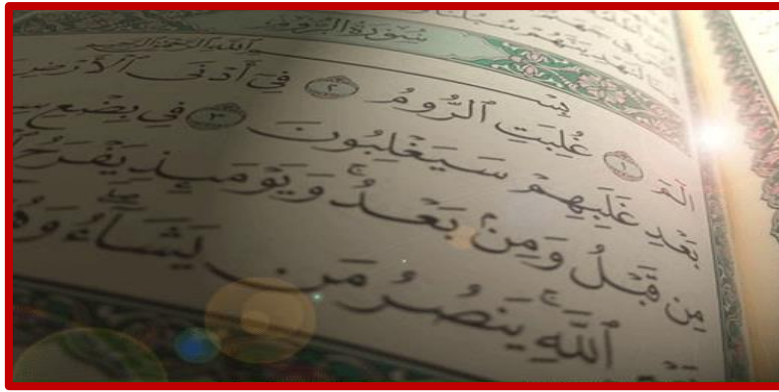 سُورَةُ الرُّومِ
بِسْمِ اللَّهِ الرَّحْمَٰنِ الرَّحِيمِ
الٓمٓ ١ غُلِبَتِ ٱلرُّومُ ٢ فِىٓ أَدْنَى ٱلْأَرْضِ
بَعْدِ غَلَبِهِمْ سَيَغْلِبُونَ ٣ فِى بِضْعِ
مِن قَبْلُ وَمِنۢ بَعْدُ ۚ وَيَوْمَئِذٍ يَفْرَحُ
ٱللَّهِ ۚ يَنصُرُ مَن يَشَآءُ ۖ